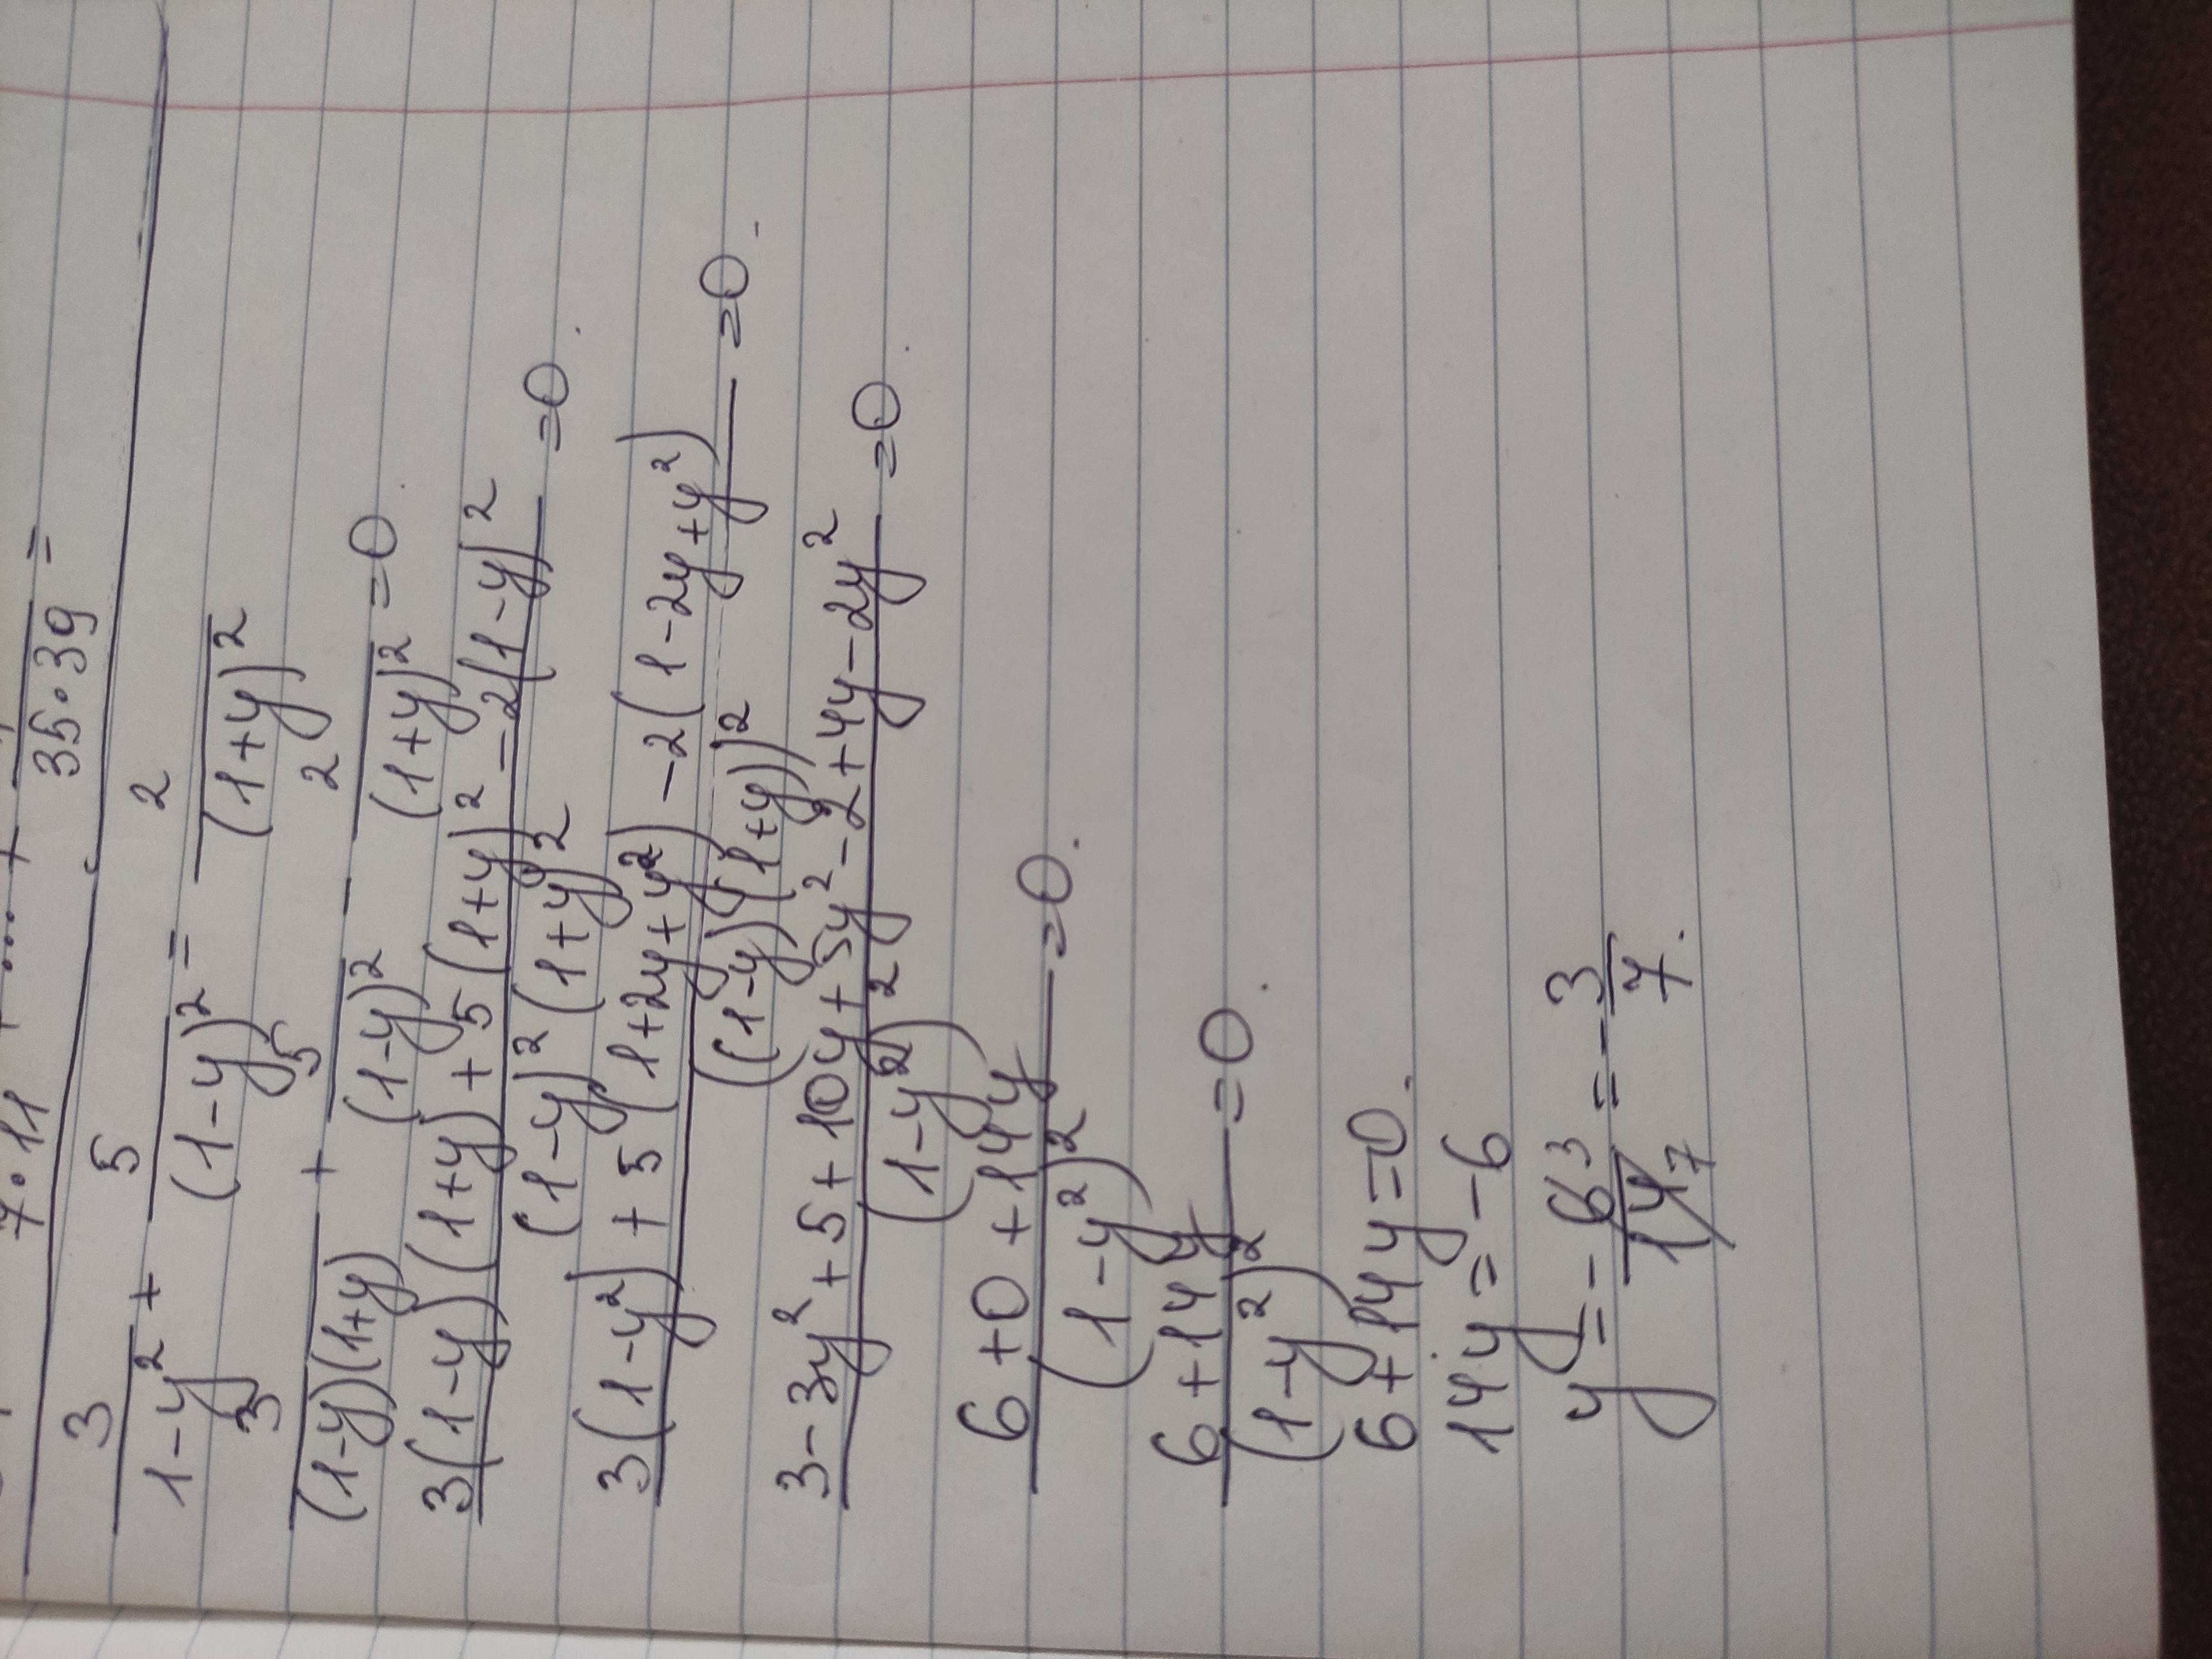 7·11 + .... + 35·39 =
3/(1-y²) + 5/(1-y)² = 2/(1+y)²
3/((1-y)(1+y)) + 5/(1-y)² - 2/(1+y)² = 0.
(3(1-y)(1+y) + 5(1+y)² - 2(1-y)²)/((1-y)²(1+y)²) = 0.
(3(1-y²) + 5(1+2y+y²) - 2(1-2y+y²))/((1-y)(1+y))² = 0.
(3-3y²+5+10y+5y²-2+4y-2y²)/(1-y²)² = 0
(6+0+14y)/(1-y²)² = 0.
(6+14y)/(1-y²)² = 0.
6+14y=0.
14y = -6
y = -6 3/14 7 = -3/7.